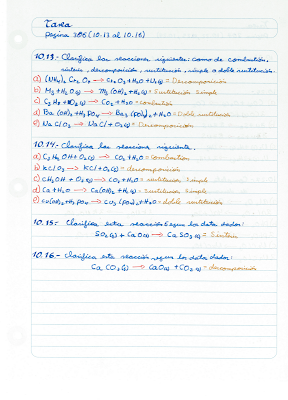 Tarea
pagina 386 (10.13 al 10.16)
10.13.- Clasifica las reacciones siguientes: como de combustión,
síntesis, descomposición, sustitución, simple o doble sustitución.
a) (NH4)2 Cr2 O7 → Cr2 O3 + H2O + N2(g) = Descomposición
b) Mg + H2O(g) → Mg (OH)2 + H2(g) = Sustitución Simple
c) + O2(g) → CO2 + H2O = combustión
d) Ba (OH)2 + H3PO4 → Ba3 (PO4)2 + H2O = Doble sustitución
e) Na Cl O3 → Na Cl + O2(g) = Descomposición
10.14.- Clasifica las reacciones siguientes.
a) C2 H5 OH + O2(g) → CO2 + H2O = Combustión
b) K Cl O3 → K Cl + O2(g) = descomposición
c) CH3 OH + O2(g) → CO2 + H2O = sustitución Simple
d) Ca + H2O → Ca(OH)2 + H2(g) = sustitución Simple
e) + H3PO4 → (PO4)2 + H2O = doble sustitución
10.15.- Clasifica esta reacción según los datos dados:
SO2(g) + CaO(s) → Ca SO3(s) = Síntesis
10.16.- Clasifica esta reacción, según los datos dados:
Ca CO3(s) → CaO(s) + CO2(g) = descomposición